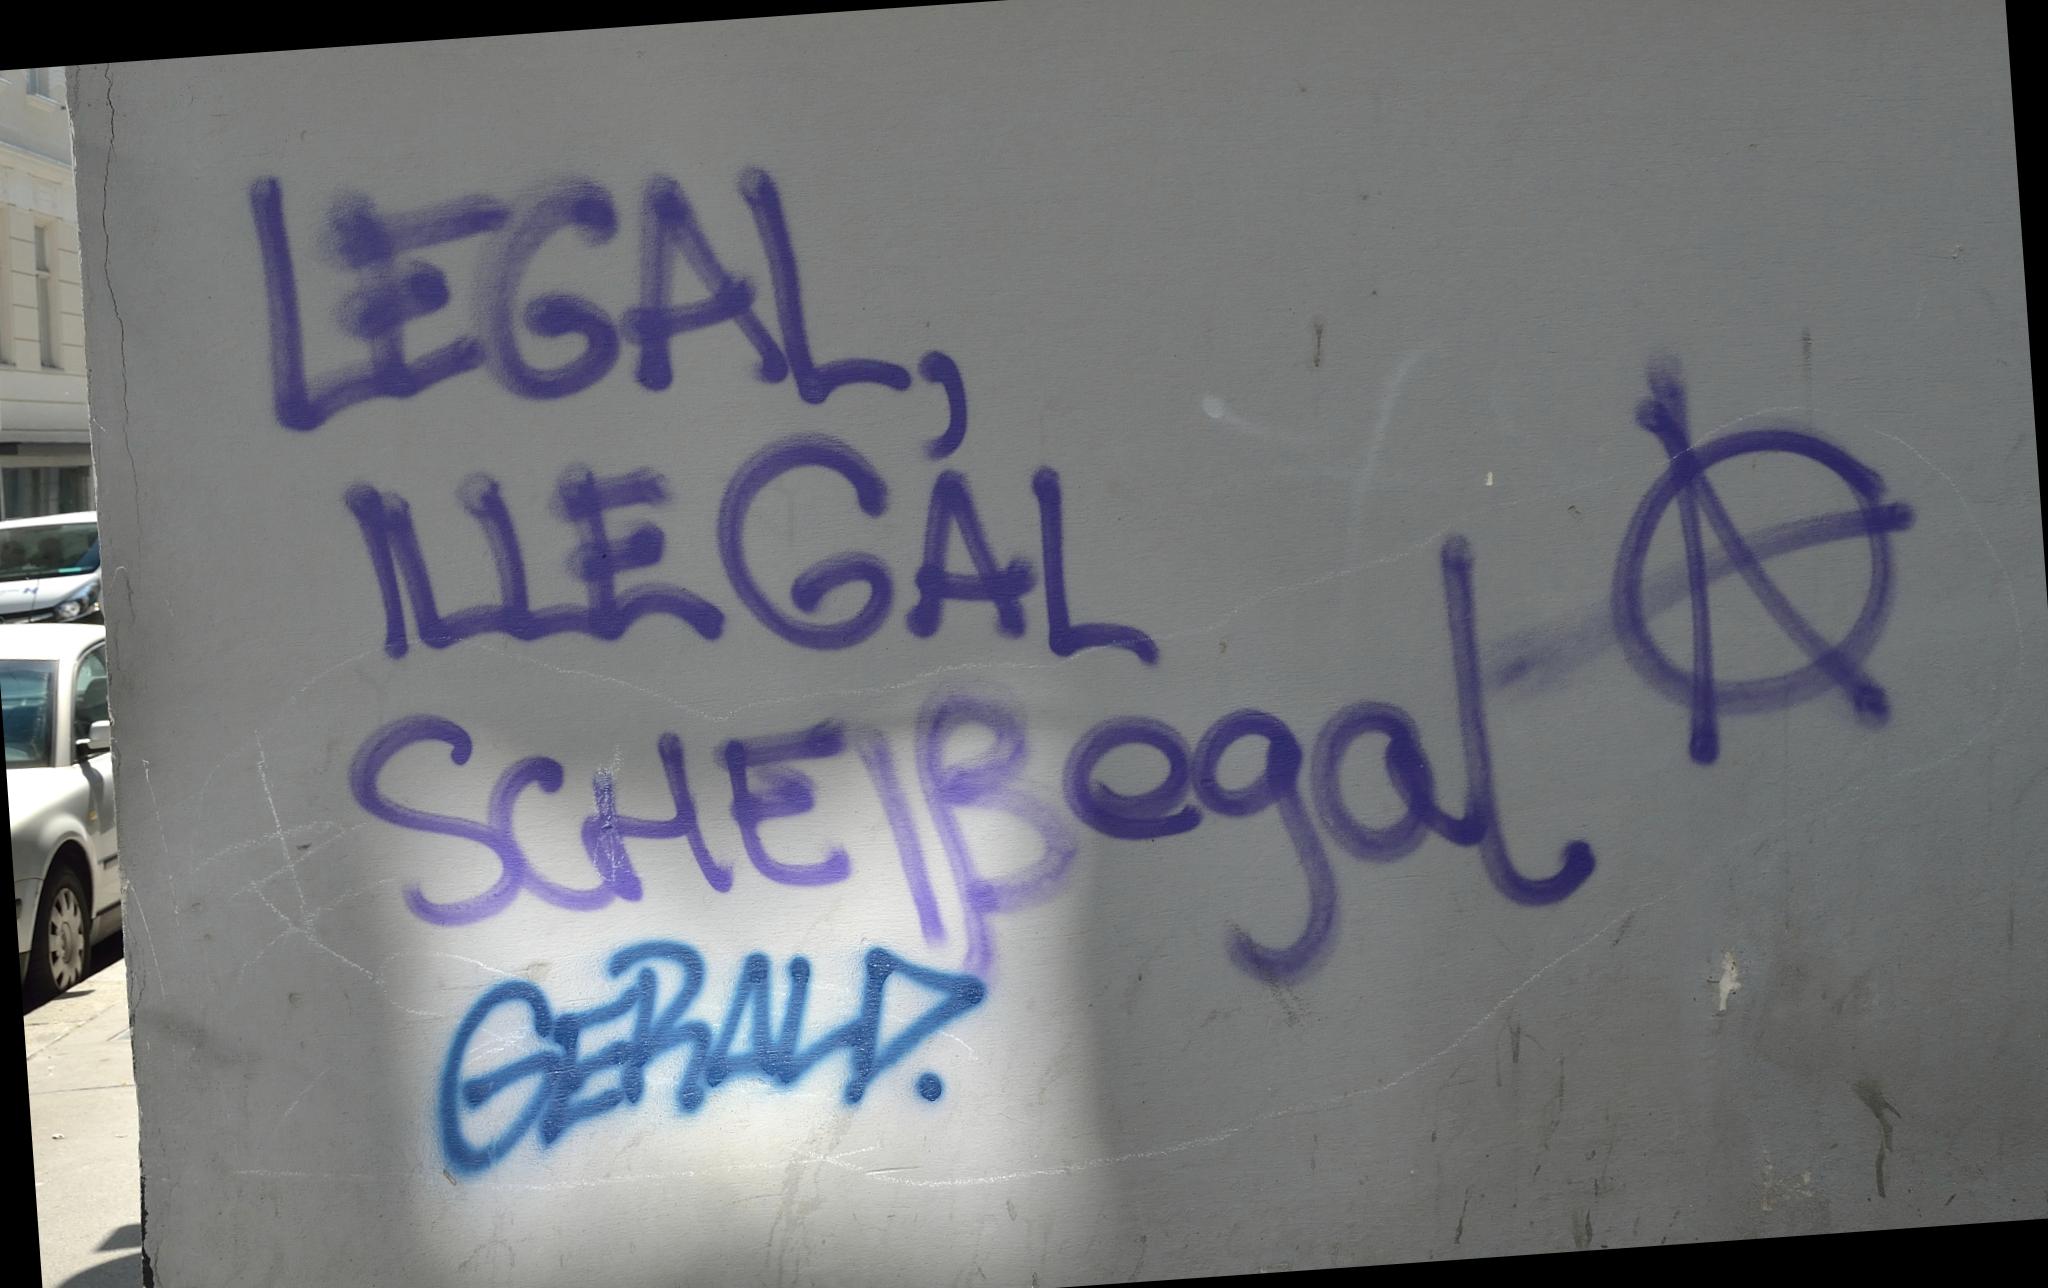 LEGAL,
ILLEGAL
SCHEIßegal
GERALD.